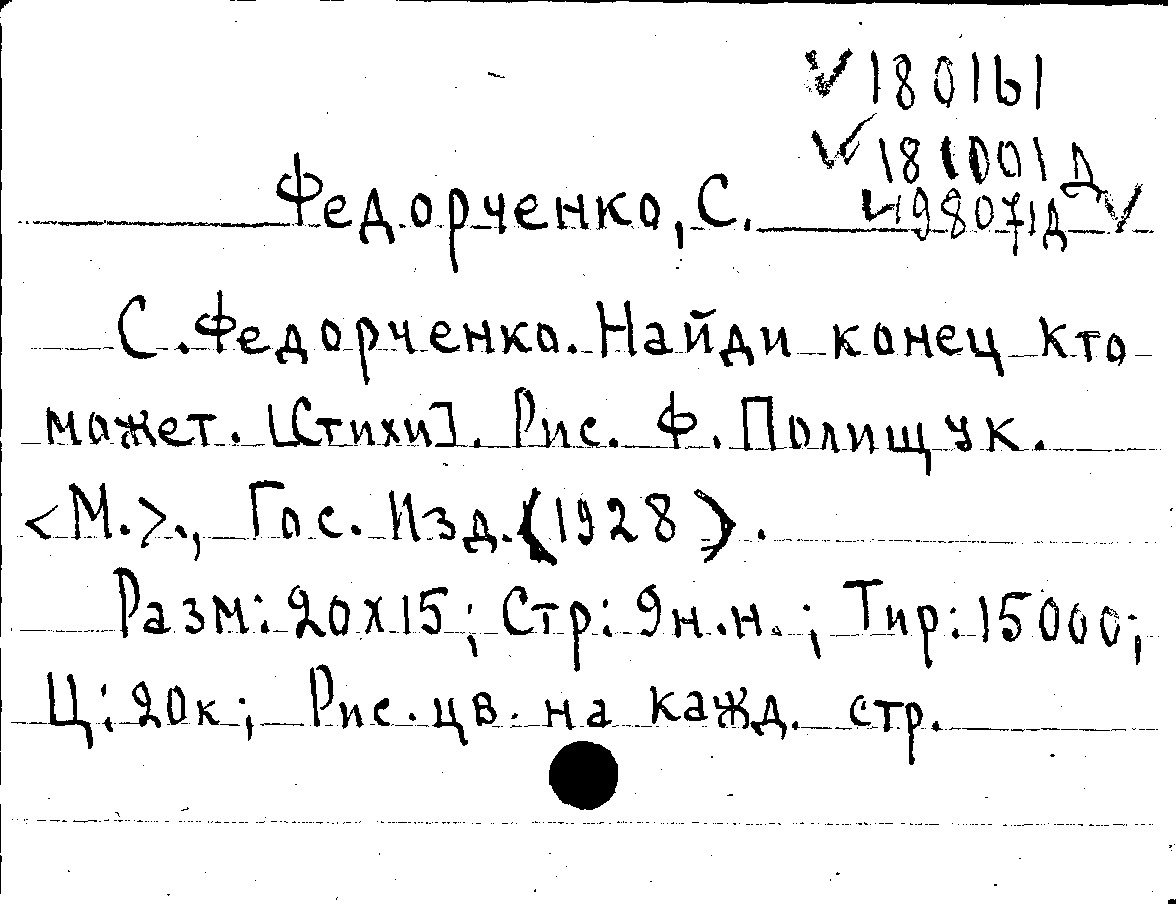 180161
181001д
Федорченко, С. 198071д
С. Федорченко. Найди конец кто
может. [Стихи]. Рис. Ф. Полищук.
<М.>., Гос. Изд. (1928).
Разм: 20х15; Стр: 9н.н.; Тир: 15000;
Ц: 20к; Рис. цв. на кажд. стр.